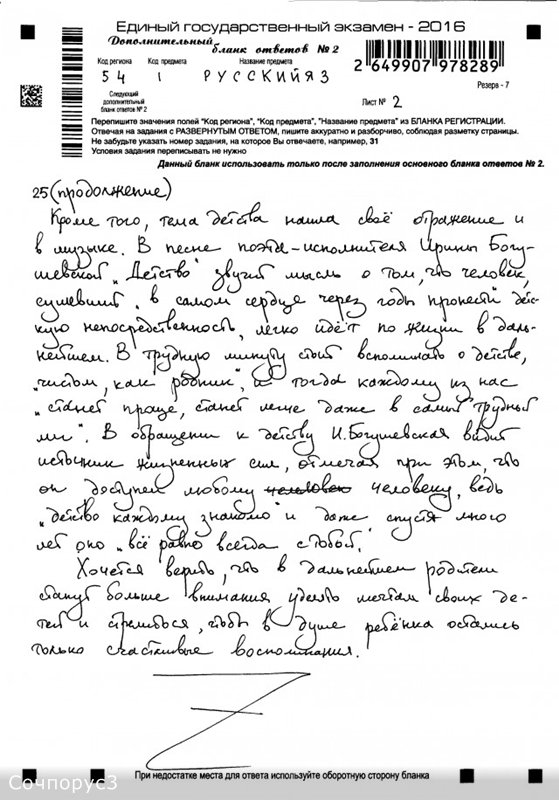 Единый государственный экзамен - 2016
Дополнительный
бланк ответов № 2
Код региона Код предмета Название предмета
54 1 РУССКИЙ ЯЗ
2 649907 978289
Резерв - 7
Следующий
дополнительный
бланк ответов № 2
Лист № 2
Перепишите значения полей "Код региона", "Код предмета", "Название предмета" из БЛАНКА РЕГИСТРАЦИИ.
Отвечая на задания с РАЗВЕРНУТЫМ ОТВЕТОМ, пишите аккуратно и разборчиво, соблюдая разметку страницы.
Не забудьте указать номер задания, на которое Вы отвечаете, например, 31
Условия задания переписывать не нужно
Данный бланк использовать только после заполнения основного бланка ответов № 2.
25 (продолжение)
Кроме того, тема детства нашла своё отражение и
в музыке. В песне поэта-исполнителя Ирины Богу-
шевской „Детство" звучит мысль о том, что человек,
сумевший „в самом сердце через годы пронести" детс-
кую непосредственность, легко идёт по жизни в даль-
нейшем. В трудную минуту стоит вспоминать о детстве,
„чистом, как родник", и тогда каждому из нас
„станет проще, станет легче даже в самый трудный
миг". В обращении к детству И.Богушевская видит
источник жизненных сил, отмечая при этом, что
он доступен любому человеку, ведь
„детство каждому знакомо" и даже спустя много
лет оно „всё равно всегда с тобой".
Хочется верить, что в дальнейшем родители
станут больше внимания уделять мечтам своих де-
тей и стремиться, чтобы в душе ребёнка остались
только счастливые воспоминания.
При недостатке места для ответа используйте оборотную сторону бланка
Сочпорус3